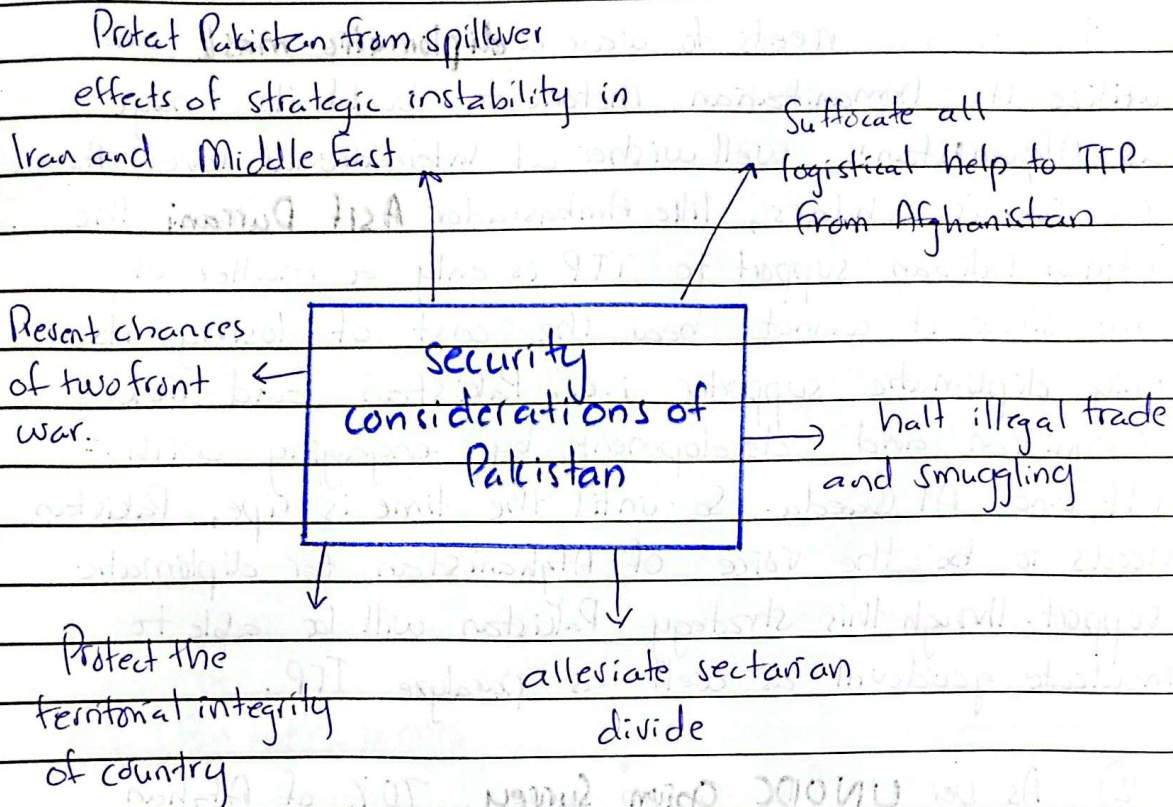 Protect Pakistan from spillover
effects of strategic instability in
Iran and Middle East
Suffocate all
logistical help to TTP
from Afghanistan
Prevent chances
of two front
war.
security
considerations of
Pakistan
halt illegal trade
and smuggling
Protect the
territorial integrity
of country
alleviate sectarian
divide